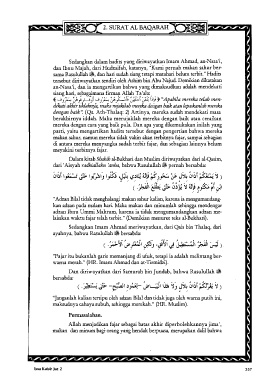 2. SURAT AL BAQARAH
Sedangkan dalam hadits yang diriwayatkan Imam Ahmad, an-Nasa'i,
dan Ibnu Majah, dari Hudzaifah, katanya, "Kami pernah makan sahur ber-
sama Rasulullah ﷺ, dan hari sudah siang tetapi matahari belum terbit." Hadits
tersebut diriwayatkan sendiri oleh Ashim bin Abu Najud. Demikian dikatakan
an-Nasa'i, dan ia mengartikan bahwa yang dimaksudkan adalah mendekati
siang hari, sebagaimana firman Allah Ta'ala:
"Apabila mereka telah men-
dekati akhir iddahnya, maka rujuklah mereka dengan baik atau lepaskanlah mereka
dengan baik". (Qs. Ath-Thalaq: 2) Artinya, mereka sudah mendekati masa
berakhirnya iddah. Maka merujuklah mereka dengan baik atau ceraikan
mereka dengan cara yang baik pula. Dan apa yang dikemukakan inilah yang
pasti, yaitu mengartikan hadits tersebut dengan pengertian bahwa mereka
makan sahur, namun mereka tidak yakin akan terbitnya fajar, sampai sebagian
di antara mereka menyangka sudah terbit fajar, dan sebagian lainnya belum
meyakini terbitnya fajar.
Dalam kitab Shahih al-Bukhari dan Muslim diriwayatkan dari al-Qasim,
dari 'Aisyah radhiallahu 'anha, bahwa Rasulullah ﷺ pernah bersabda:
( لاَ يَمْنَعُكُمْ أَذَانُ بِلاَلٍ عَنْ سَحُوْرِكُمْ فَإِنَّهُ يُنَادِي بِلَيْلٍ، فَكُلُوا وَاشْرَبُوا حَتَّى تَسْمَعُوا أَذَانَ
ابْنِ أُمِّ مَكْتُومٍ فَإِنَّهُ لاَ يُؤَذِّنُ حَتَّى يَطْلُعَ الْفَجْرُ. )
"Adzan Bilal tidak menghalangi makan sahur kalian, karena ia mengumandang-
kan adzan pada malam hari. Maka makan dan minumlah sehingga mendengar
adzan Ibnu Ummi Maktum, karena ia tidak mengumandangkan adzan me-
lainkan waktu fajar telah terbit." (Demikian menurut teks al-Bukhari).
Sedangkan Imam Ahmad meriwayatkan, dari Qais bin Thalaq, dari
ayahnya, bahwa Rasulullah ﷺ bersabda:
( لَيْسَ الْفَجْرُ الْمُسْتَطِيْلُ فِي الأُفُقِ، وَلَكِنِ الْمُعْتَرِضُ الأَحْمَرُ. )
"Fajar itu bukanlah garis memanjang di ufuk, tetapi ia adalah melintang ber-
warna merah." (HR. Imam Ahmad dan at-Tirmidzi).
Dan diriwayatkan dari Samurah bin Jundab, bahwa Rasulullah ﷺ
bersabda:
"Janganlah kalian tertipu oleh adzan Bilal dan tidak juga oleh warna putih ini,
maksudnya cahaya subuh, sehingga merekah." (HR. Muslim).
Permasalahan.
Allah menjadikan fajar sebagai batas akhir diperbolehkannya jima',
makan dan minum bagi orang yang hendak berpuasa, merupakan dalil bahwa
Ibnu Katsir Juz 2
357